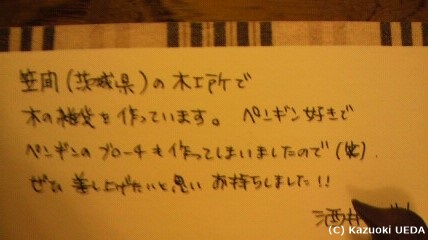 笠間(茨城県)の木工所で
木の雑貨を作っています。ペンギン好きで
ペンギンのブローチも作ってしまいましたので(笑).
ぜひ差し上げたいと思いお持ちしました!!
酒井
(C) Kazuoki UEDA